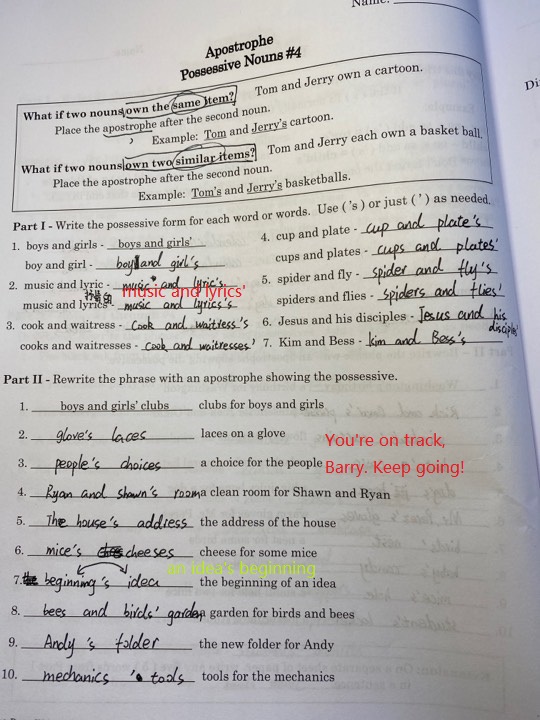 Name:
Apostrophe
Possessive Nouns #4
What if two nouns own the same item? Tom and Jerry own a cartoon.
Place the apostrophe after the second noun.
Example: Tom and Jerry's cartoon.
What if two nouns own two similar items? Tom and Jerry each own a basket ball.
Place the apostrophe after the second noun.
Example: Tom's and Jerry's basketballs.
Part I - Write the possessive form for each word or words. Use ('s) or just (') as needed.
1. boys and girls - boys and girls'
boy and girl - boy and girl's
2. music and lyric - music and lyric's
music and lyrics'
music and lyrics - music and lyric's
3. cook and waitress - Cook and waitress's
cooks and waitresses - Cook and waitresses'
4. cup and plate - cup and plate's
cups and plates - cups and plates'
5. spider and fly - spider and fly's
spiders and flies - Spiders and flies'
6. Jesus and his disciples - Jesus and his
disciples'
7. Kim and Bess - kim and Bess's
Part II - Rewrite the phrase with an apostrophe showing the possessive.
1. boys and girls' clubs clubs for boys and girls
2. glove's laces laces on a glove
3. people's choices a choice for the people
You're on track,
Barry. Keep going!
4. Ryan and shawn's room a clean room for Shawn and Ryan
5. The house's address the address of the house
6. mice's cheeses cheese for some mice
an idea's beginning
7. beginning's idea the beginning of an idea
8. bees and birds' garden a garden for birds and bees
9. Andy's folder the new folder for Andy
10. mechanics ' tools tools for the mechanics